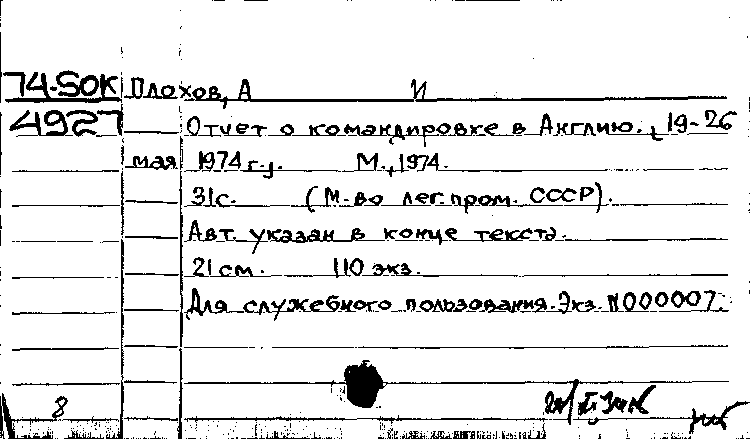 74-SOK Плохов, А И
4927 Отчет о командировке в Англию. [19-26
мая 1974 г.]. М., 1974.
31с. (М-во лег. пром. СССР).
Авт. указан в конце текста.
21 см. 110 экз.
Для служебного пользования. Экз. N000007.
8